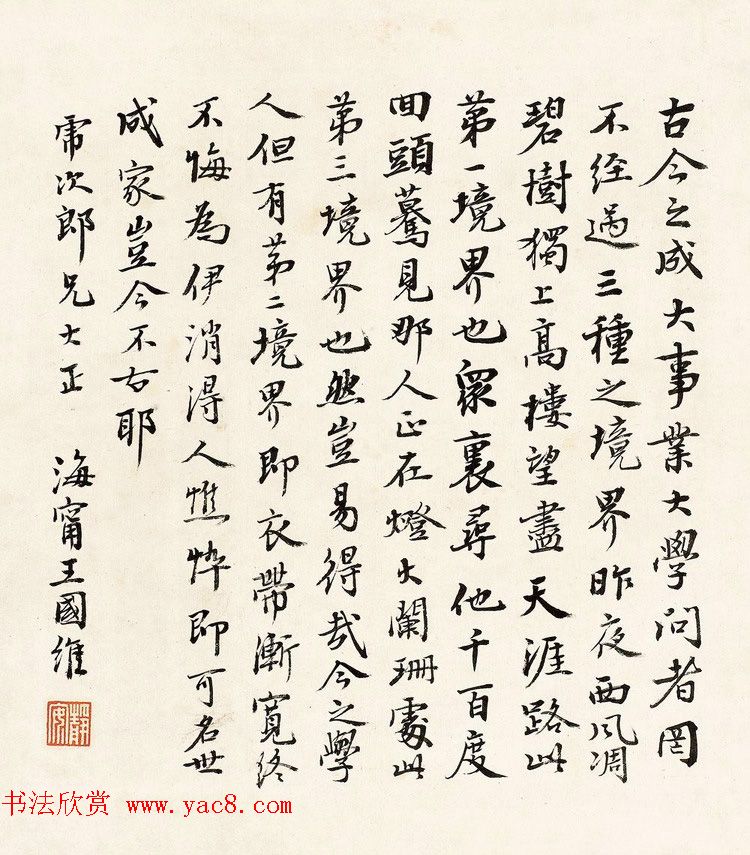 古今之成大事業大學问者罔
不经過三種之境界昨夜西风凋
碧樹獨上高樓望盡天涯路此
第一境界也眾裏尋他千百度
回頭驀見那人正在燈火闌珊處此
第三境界也然豈易得哉今之學
人但有第二境界即衣帶漸寬终
不悔為伊消得人憔悴即可名世
成家豈今不古耶
乕次郎兄大正 海甯王國維
靜安
书法欣赏 www.yac8.com